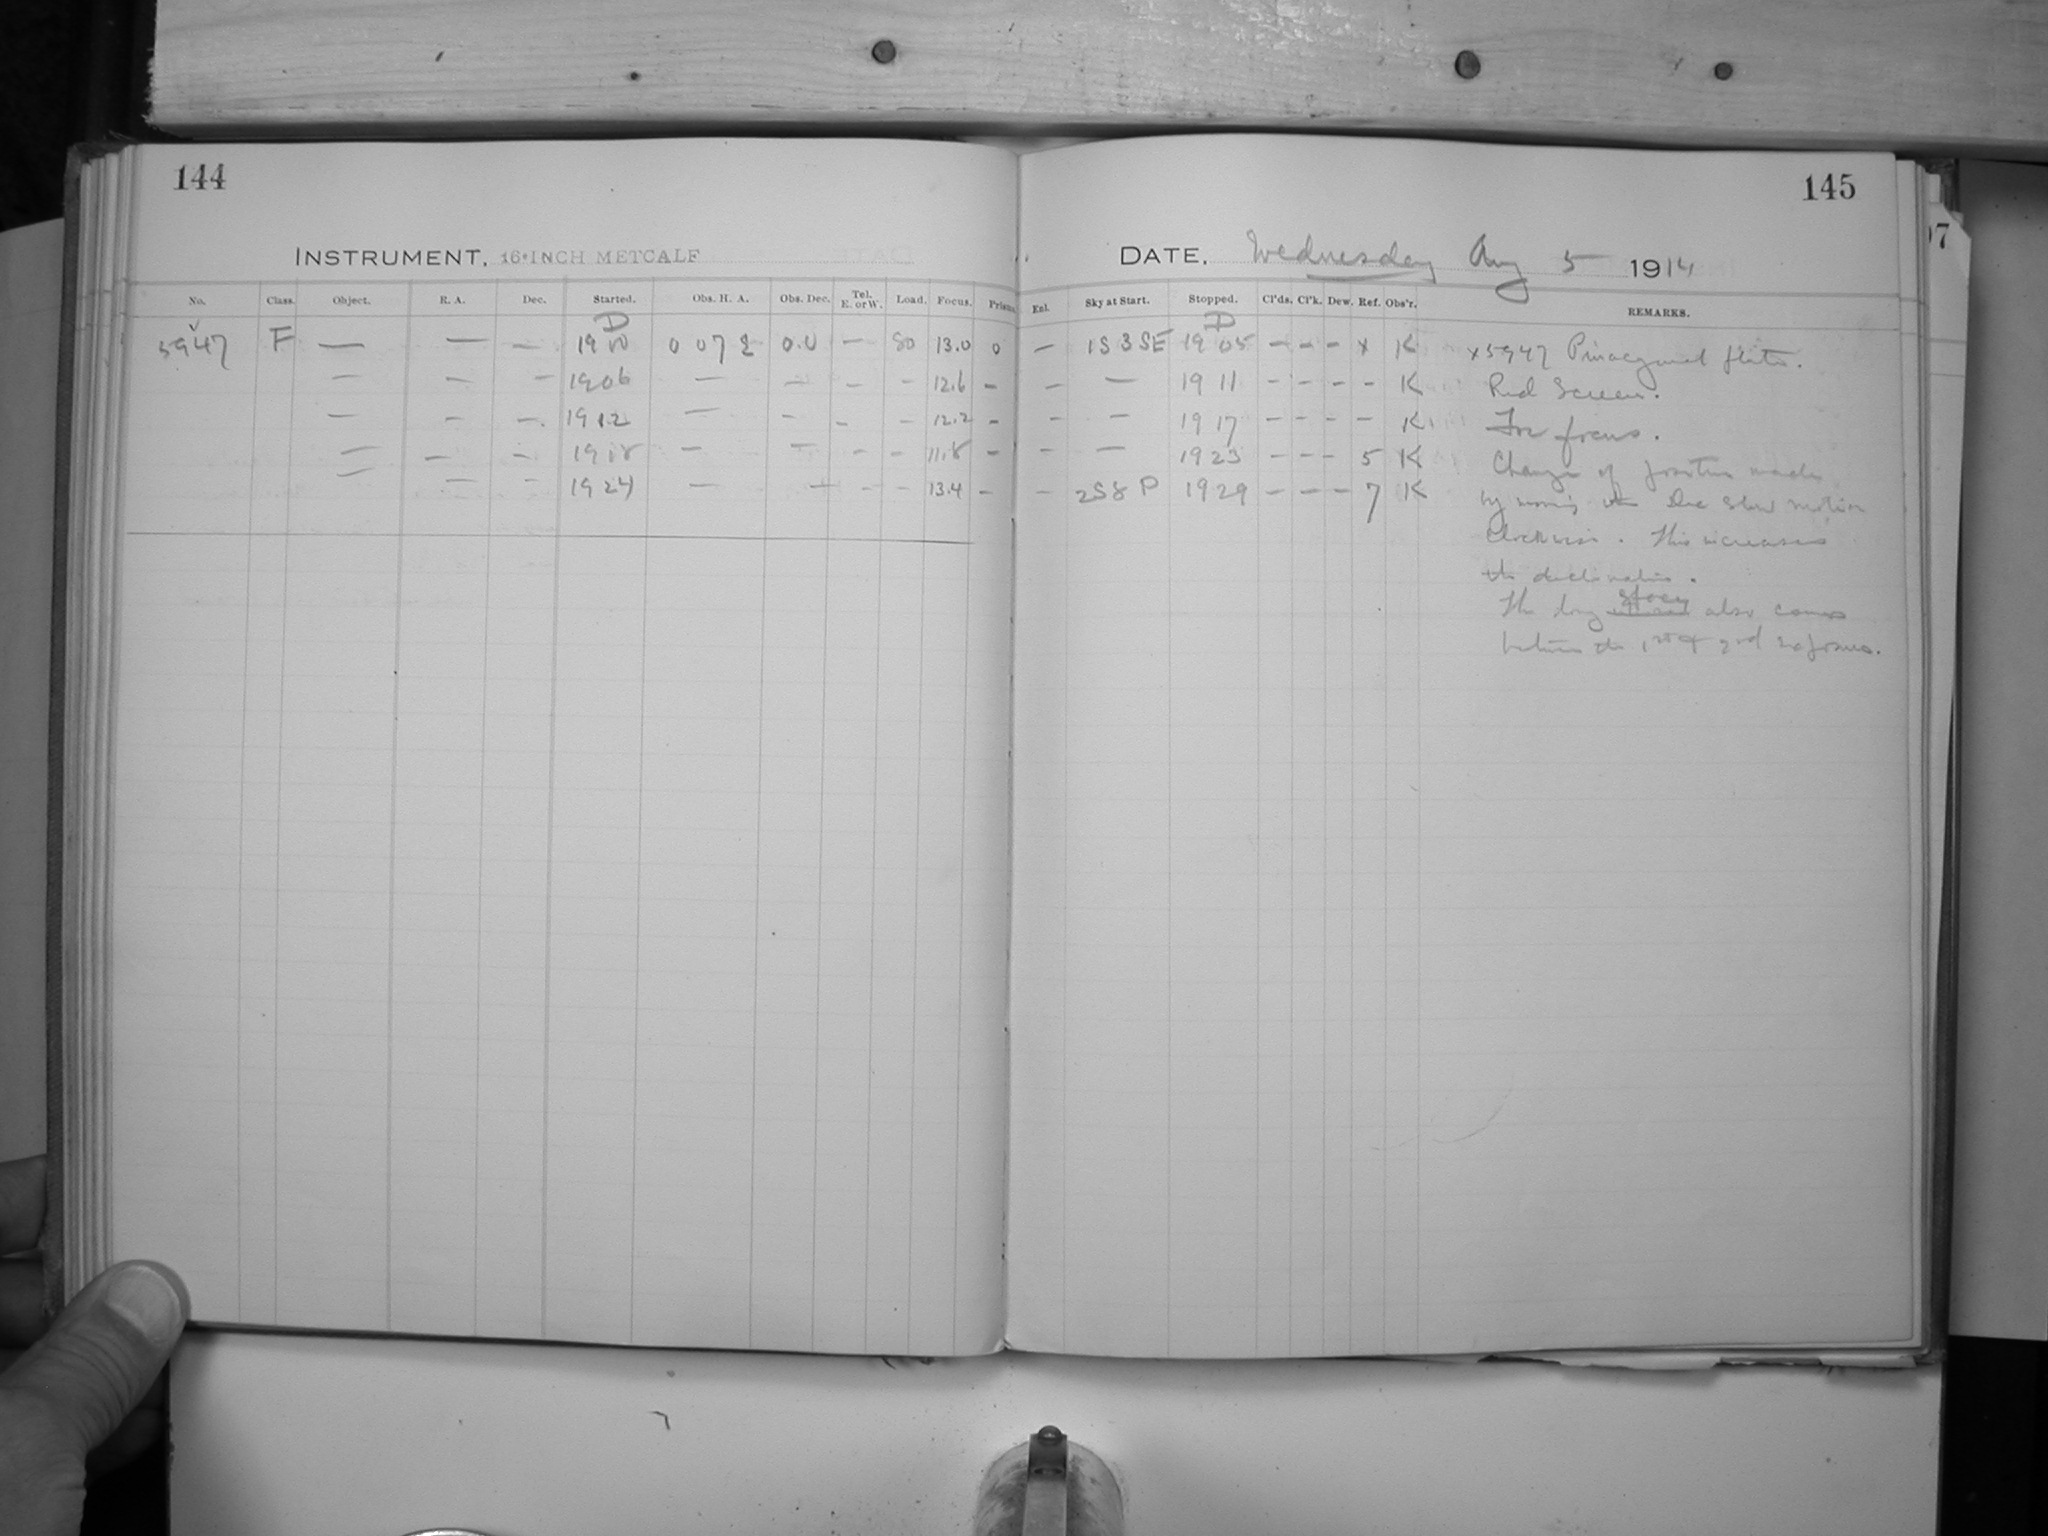 144
145
INSTRUMENT, 16-INCH METCALF
DATE, Wednesday Aug 5 1914
No. Class. Object. R. A. Dec. Started. Obs. H. A. Obs. Dec. Tel. E. or W. Load. Focus. Prism.
Enl. Sky at Start. Stopped. Cl'ds. Cl'k. Dew. Ref. Obs'r. REMARKS.
D
D
5947 F — — — 19 00 0 07 2 0.0 — 80 13.0 0
— 1S 3 SE 19 05 - - - x K x5947 Pinacyanol plate.
— — — 19 06 — — — — 12.6 —
— — 19 11 - - - - K Red Screen.
— — — 19 12 — — — — 12.2 —
— — 19 17 - - - - K For focus.
— — — 19 18 — — — — 11.8 —
— — 19 23 - - - 5 K Change of position made
— — — 19 24 — — — — 13.4 —
— 2S8 P 19 29 - - - 7 K by moving the Dec slow motion
clockwise. This increases
the declination.
space
The long also comes
between the 1st & 2nd exposures.
07